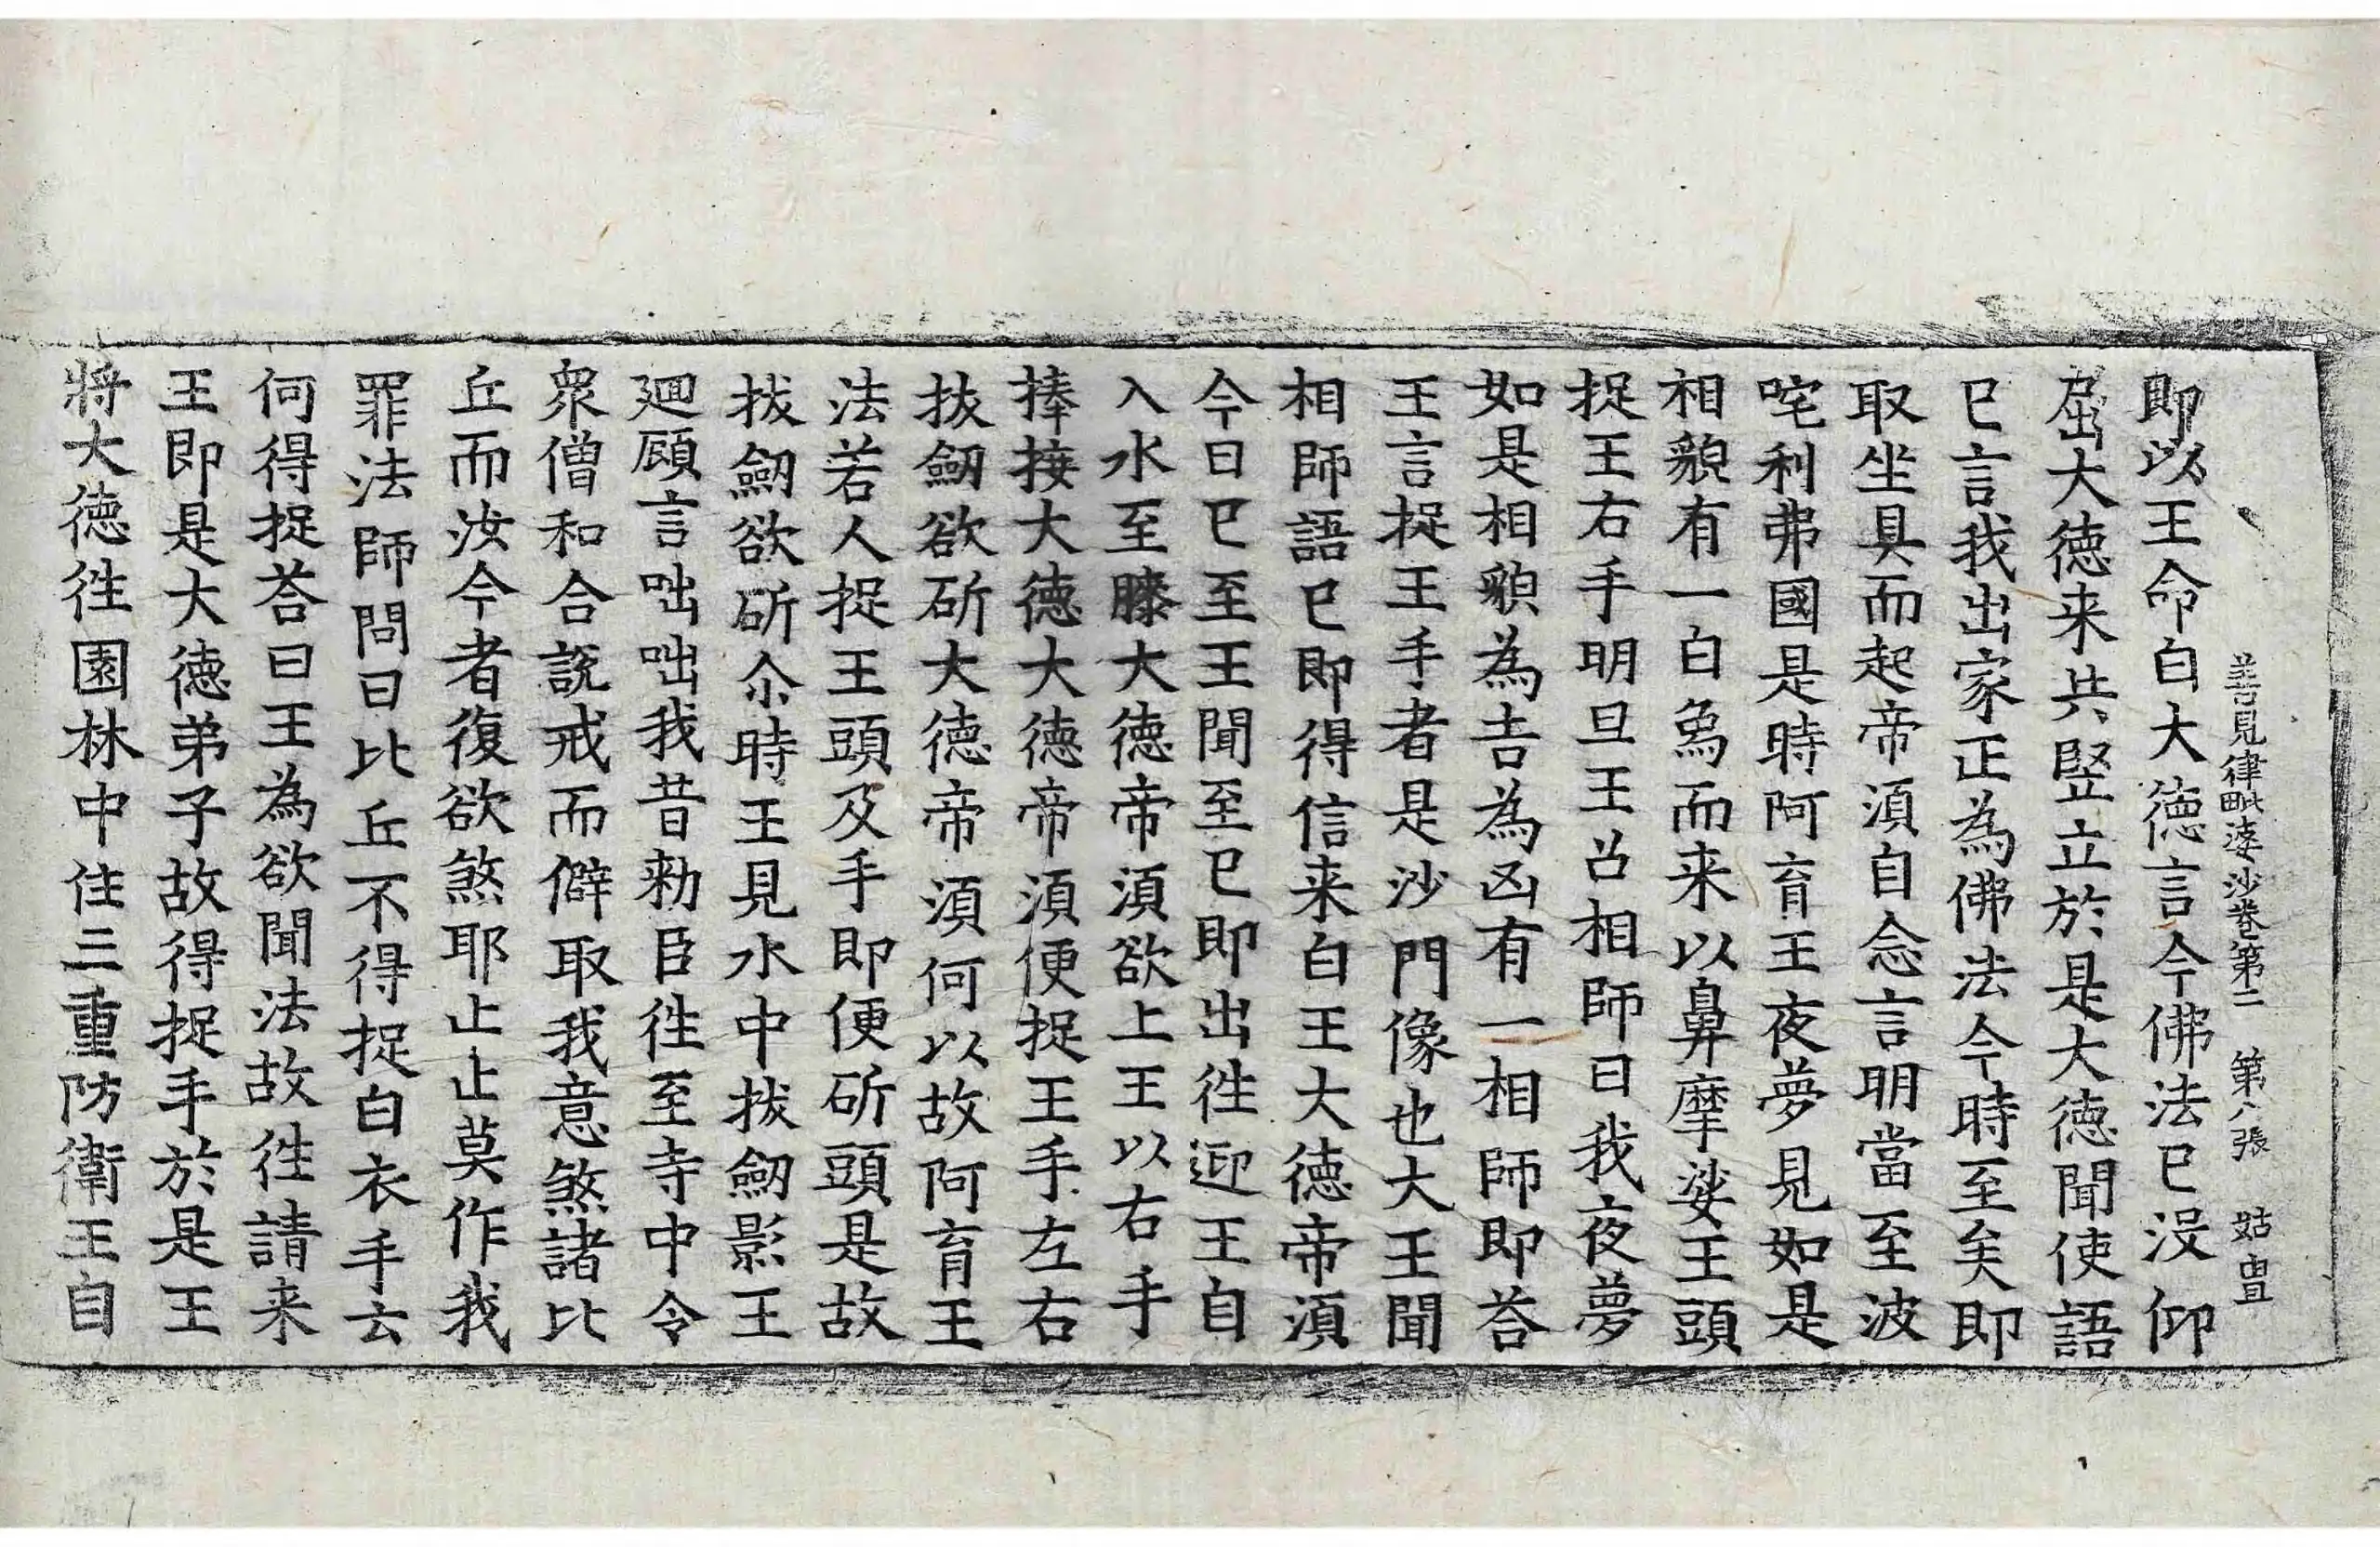 善見律毗婆沙卷第二　第八張　姑
即以王命白大德言今佛法已没仰
屈大德来共竪立於是大德聞使語
已言我出家正為佛法今時至矣即
取坐具而起帝湏自念言明當至波
咤利弗國是時阿育王夜夢見如是
相貌有一白烏而来以鼻摩娑王頭
捉王右手明旦王召相師曰我夜夢
如是相貌為吉為凶有一相師即荅
王言捉王手者是沙門像也大王聞
相師語已即得信来白王大德帝湏
今日已至王聞至已即出徃迎王自
入水至膝大德帝湏欲上王以右手
捧接大德大德帝湏便捉王手左右
拔劒欲斫大德帝湏何以故阿育王
法若人捉王頭及手即便斫頭是故
拔劒欲斫尒時王見水中拔劒影王
迴顧言咄咄我昔勑臣徃至寺中令
衆僧和合說戒而僻取我意煞諸比
丘而汝今者復欲煞耶止止莫作我
罪法師問曰比丘不得捉白衣手云
何得捉荅曰王為欲聞法故徃請来
王即是大德弟子故得捉手於是王
將大德徃園林中住三重防衛王自